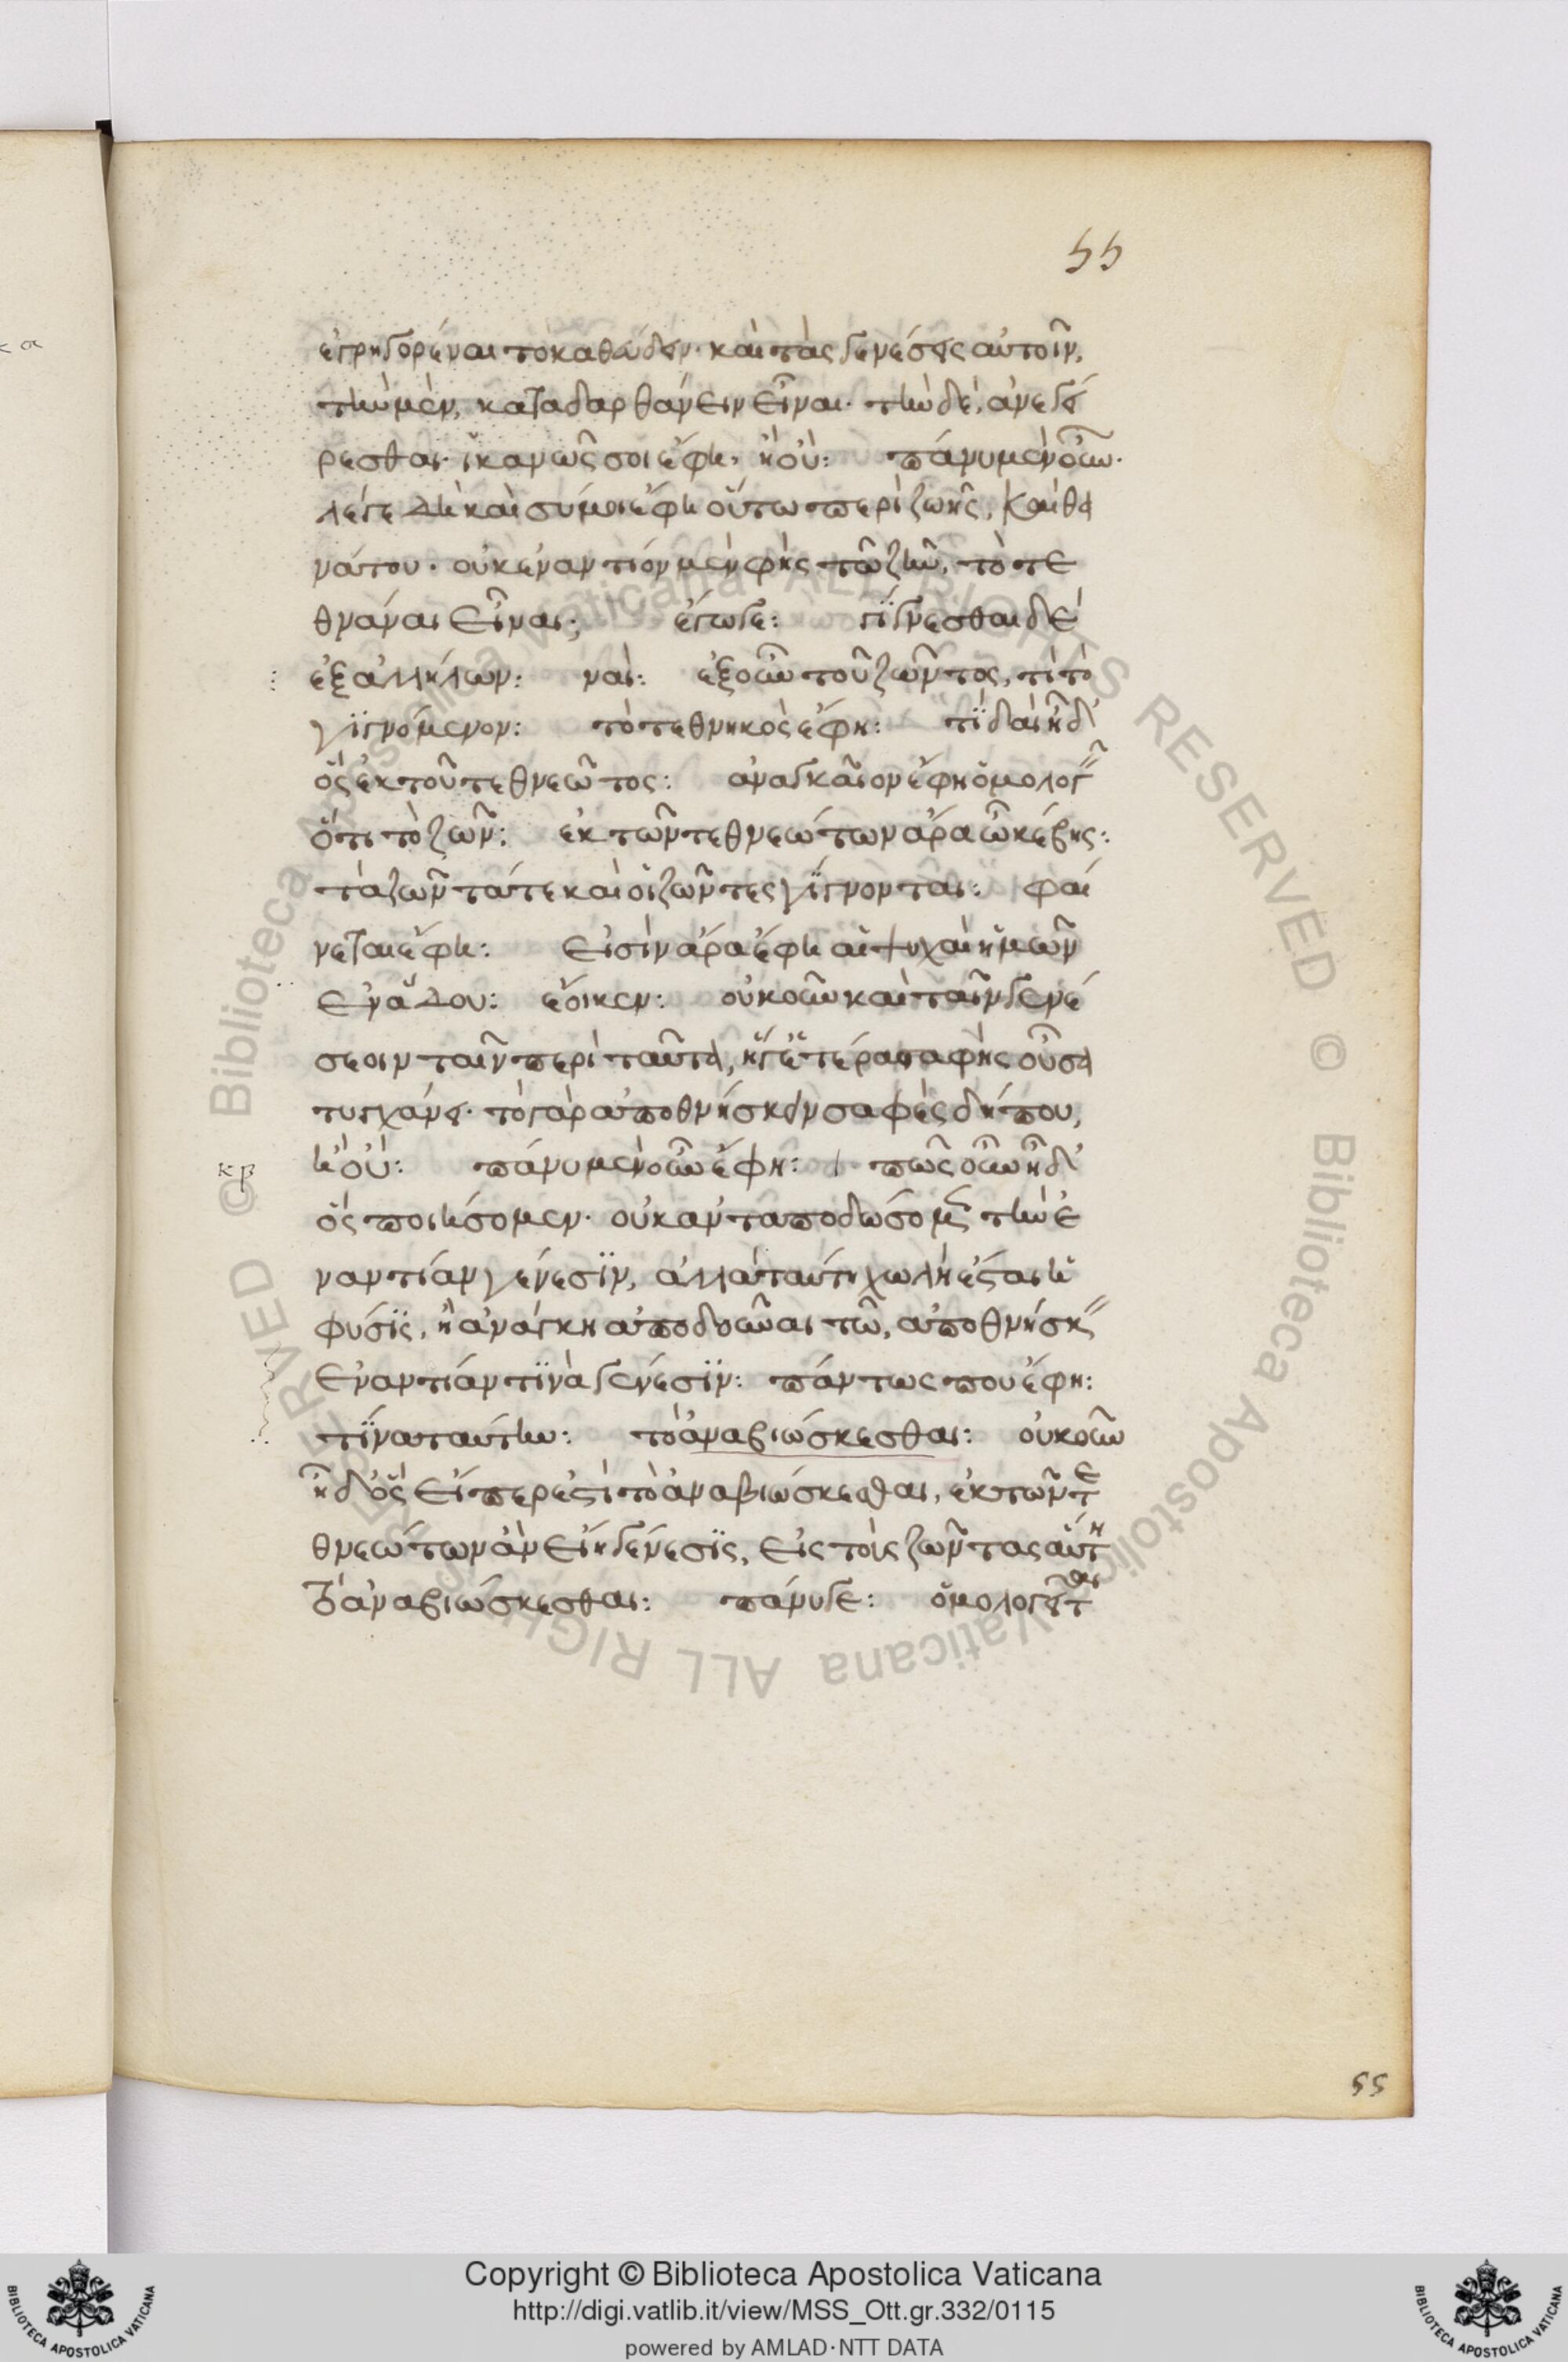 55
ἐγρηγορέναι τὸ καθεύδειν· καὶ τὰς γενέσεις αὐτοῖν,
τὴν μὲν, καταδαρθάνειν εἶναι· τὴν δὲ, ἀνεγεί
ρεσθαι· ἱκανῶς σοι ἔφη, ἢ οὔ: πάνυ μὲν οὖν.
λέγε δὴ καὶ σύ μοι ἔφη οὕτω περὶ ζωῆς, καὶ θα
νάτου· οὐκ ἐναντίον μὲν φὴς τῶ ζῆν, τὸ τε
θνάναι εἶναι; ἔγωγε: γίγνεσθαι δὲ
ἐξ ἀλλήλων: ναί: ἐξ οὖν τοῦ ζῶντος, τί τὸ
γιγνόμενον: τὸ τεθνηκὸς ἔφη: τί δαὶ ἦ δ'
ὃς ἐκ τοῦ τεθνεῶτος: ἀναγκαῖον ἔφη ὁμολογεῖν
ὅτι τὸ ζῶν: ἐκ τῶν τεθνεώτων ἄρα ὦ κέβης:
τὰ ζῶντά τε καὶ οἱ ζῶντες γίγνονται: φαί
νεται ἔφη: εἰσὶν ἄρα ἔφη αἱ ψυχαὶ ἡμῶν
ἐν ἅδου: ἔοικεν: οὐκοῦν καὶ ταῖν γενε
σέοιν ταῖν περὶ ταῦτα, ἥ γ' ἑτέρα σαφὴς οὖσα
τυγχάνει· τὸ γὰρ ἀποθνήσκειν σαφὲς δήπου,
κβ
ἢ οὔ: πάνυ μὲν οὖν ἔφη: πῶς οὖν ἦ δ'
ὃς ποιήσομεν· οὐκ ἀνταποδώσομεν τὴν ἐ
ναντίαν γένεσιν, ἀλλὰ ταύτῃ χωλὴ ἔσται ἡ
φύσις, ἢ ἀνάγκη ἀποδοῦναι τῶ, ἀποθνήσκειν
ἐναντίαν τινὰ γένεσιν: πάντως που ἔφη:
τίνα ταύτην: τὸ ἀναβιώσκεσθαι: οὐκοῦν
ἦ δ' ὃς εἴπερ ἐστὶ τὸ ἀναβιώσκεσθαι, ἐκ τῶν τε
θνεώτων ἂν εἴη γένεσις, εἰς τοὺς ζῶντας αὕτη
τὸ ἀναβιώσκεσθαι: πάνυ γε: ὁμολογεῖται
55
Biblioteca Apostolica Vaticana ALL RIGHTS RESERVED ©
Biblioteca Apostolica Vaticana ALL RIGHTS RESERVED ©
BIBLIOTECA APOSTOLICA VATICANA
Copyright © Biblioteca Apostolica Vaticana
http://digi.vatlib.it/view/MSS_Ott.gr.332/0115
powered by AMLAD·NTT DATA
BIBLIOTECA APOSTOLICA VATICANA